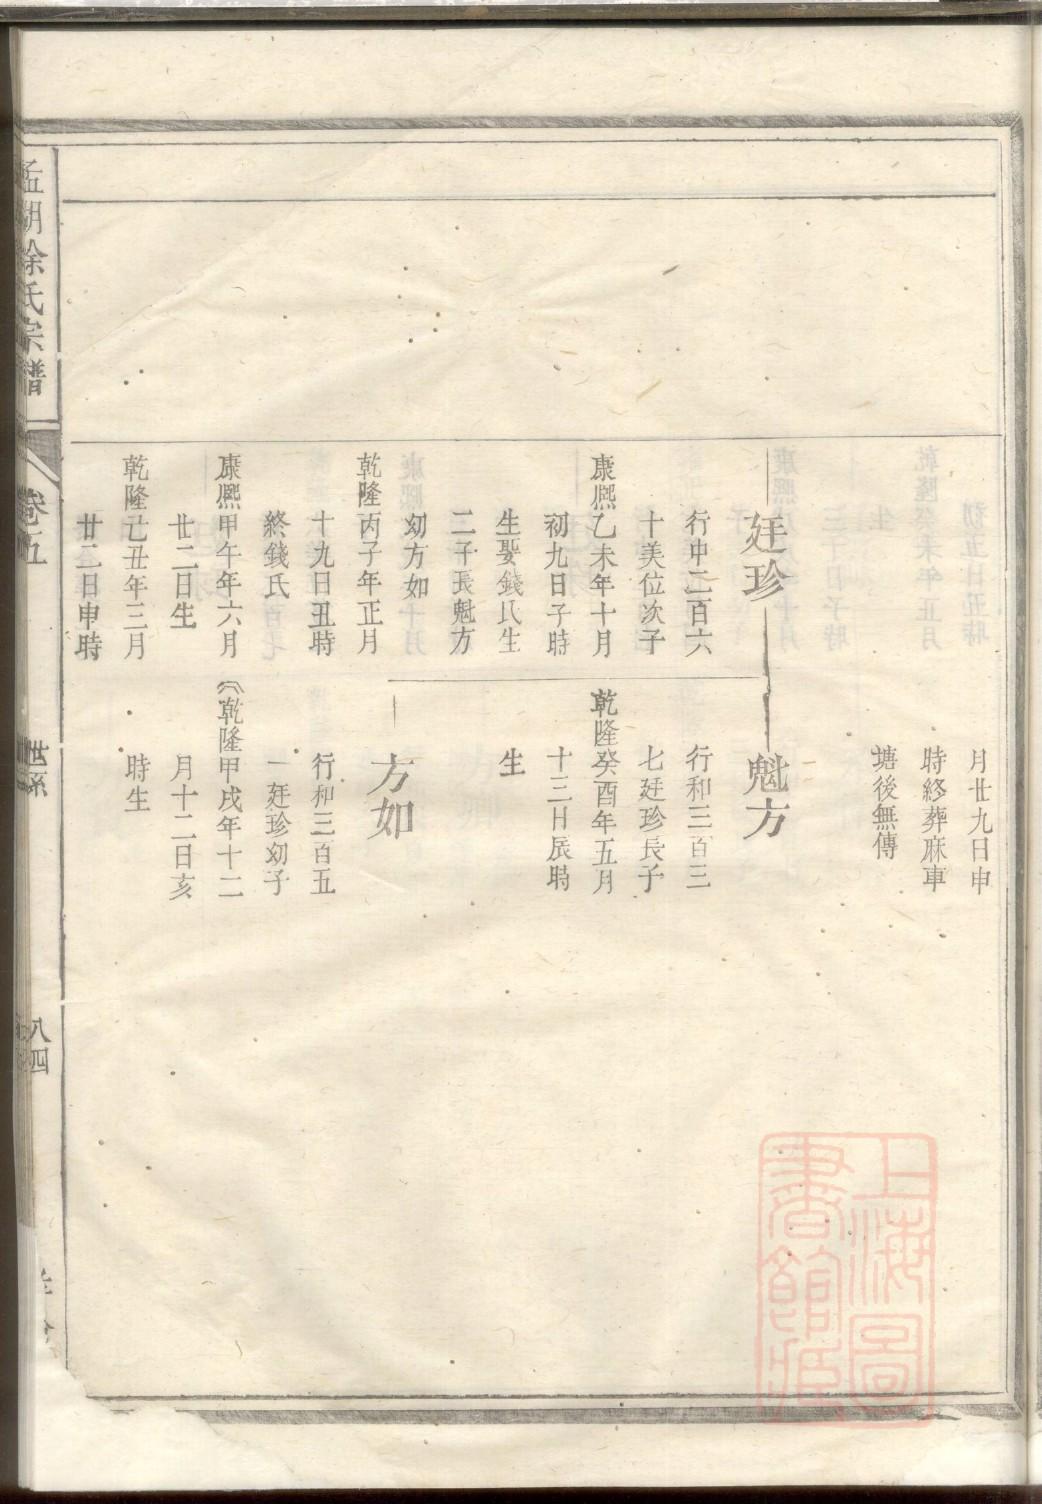 月廿九日申
時終葬麻車
塘後無傳
廷珍
行中二百六
十美位次子
康熈乙未年十月
初九日子時
生娶錢氏生
二子長魁方
幼方如
乾隆丙子年正月
十九日丑時
終錢氏
康熈甲午年六月
廿二日生
乾隆己丑年三月
廿二日申時
魁方
行和三百三
七廷珍長子
乾隆癸酉年五月
十三日辰時
生
方如
行和三百五
一廷珍幼子
乾隆甲戌年十二
月十二日亥
時生
孟湖徐氏宗譜
卷五
世系
八四
上海圖
書館藏